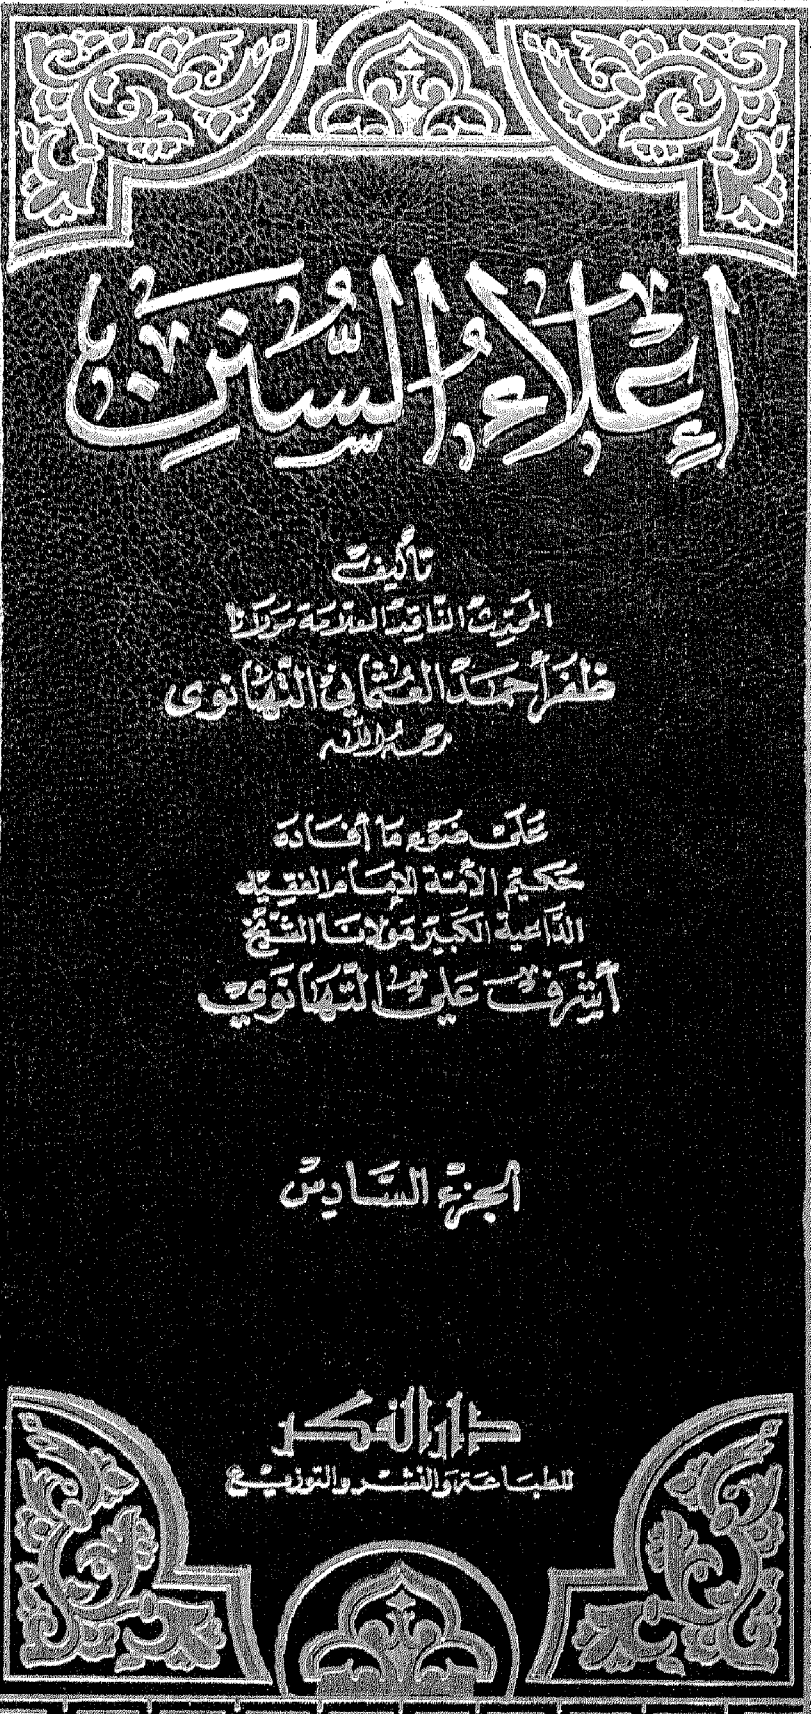 إعلاء السنن
تأليف
المحدث الناقد العلامة مولانا
ظفر أحمد العثماني التهانوى
رحمه الله
على ضوء ما أفاده
حكيم الأمة الإمام الفقيه
الداعية الكبير مولانا الشيخ
أشرف علي التهانوي
الجزء السادس
دار الفكر
للطباعة والنشر والتوزيع